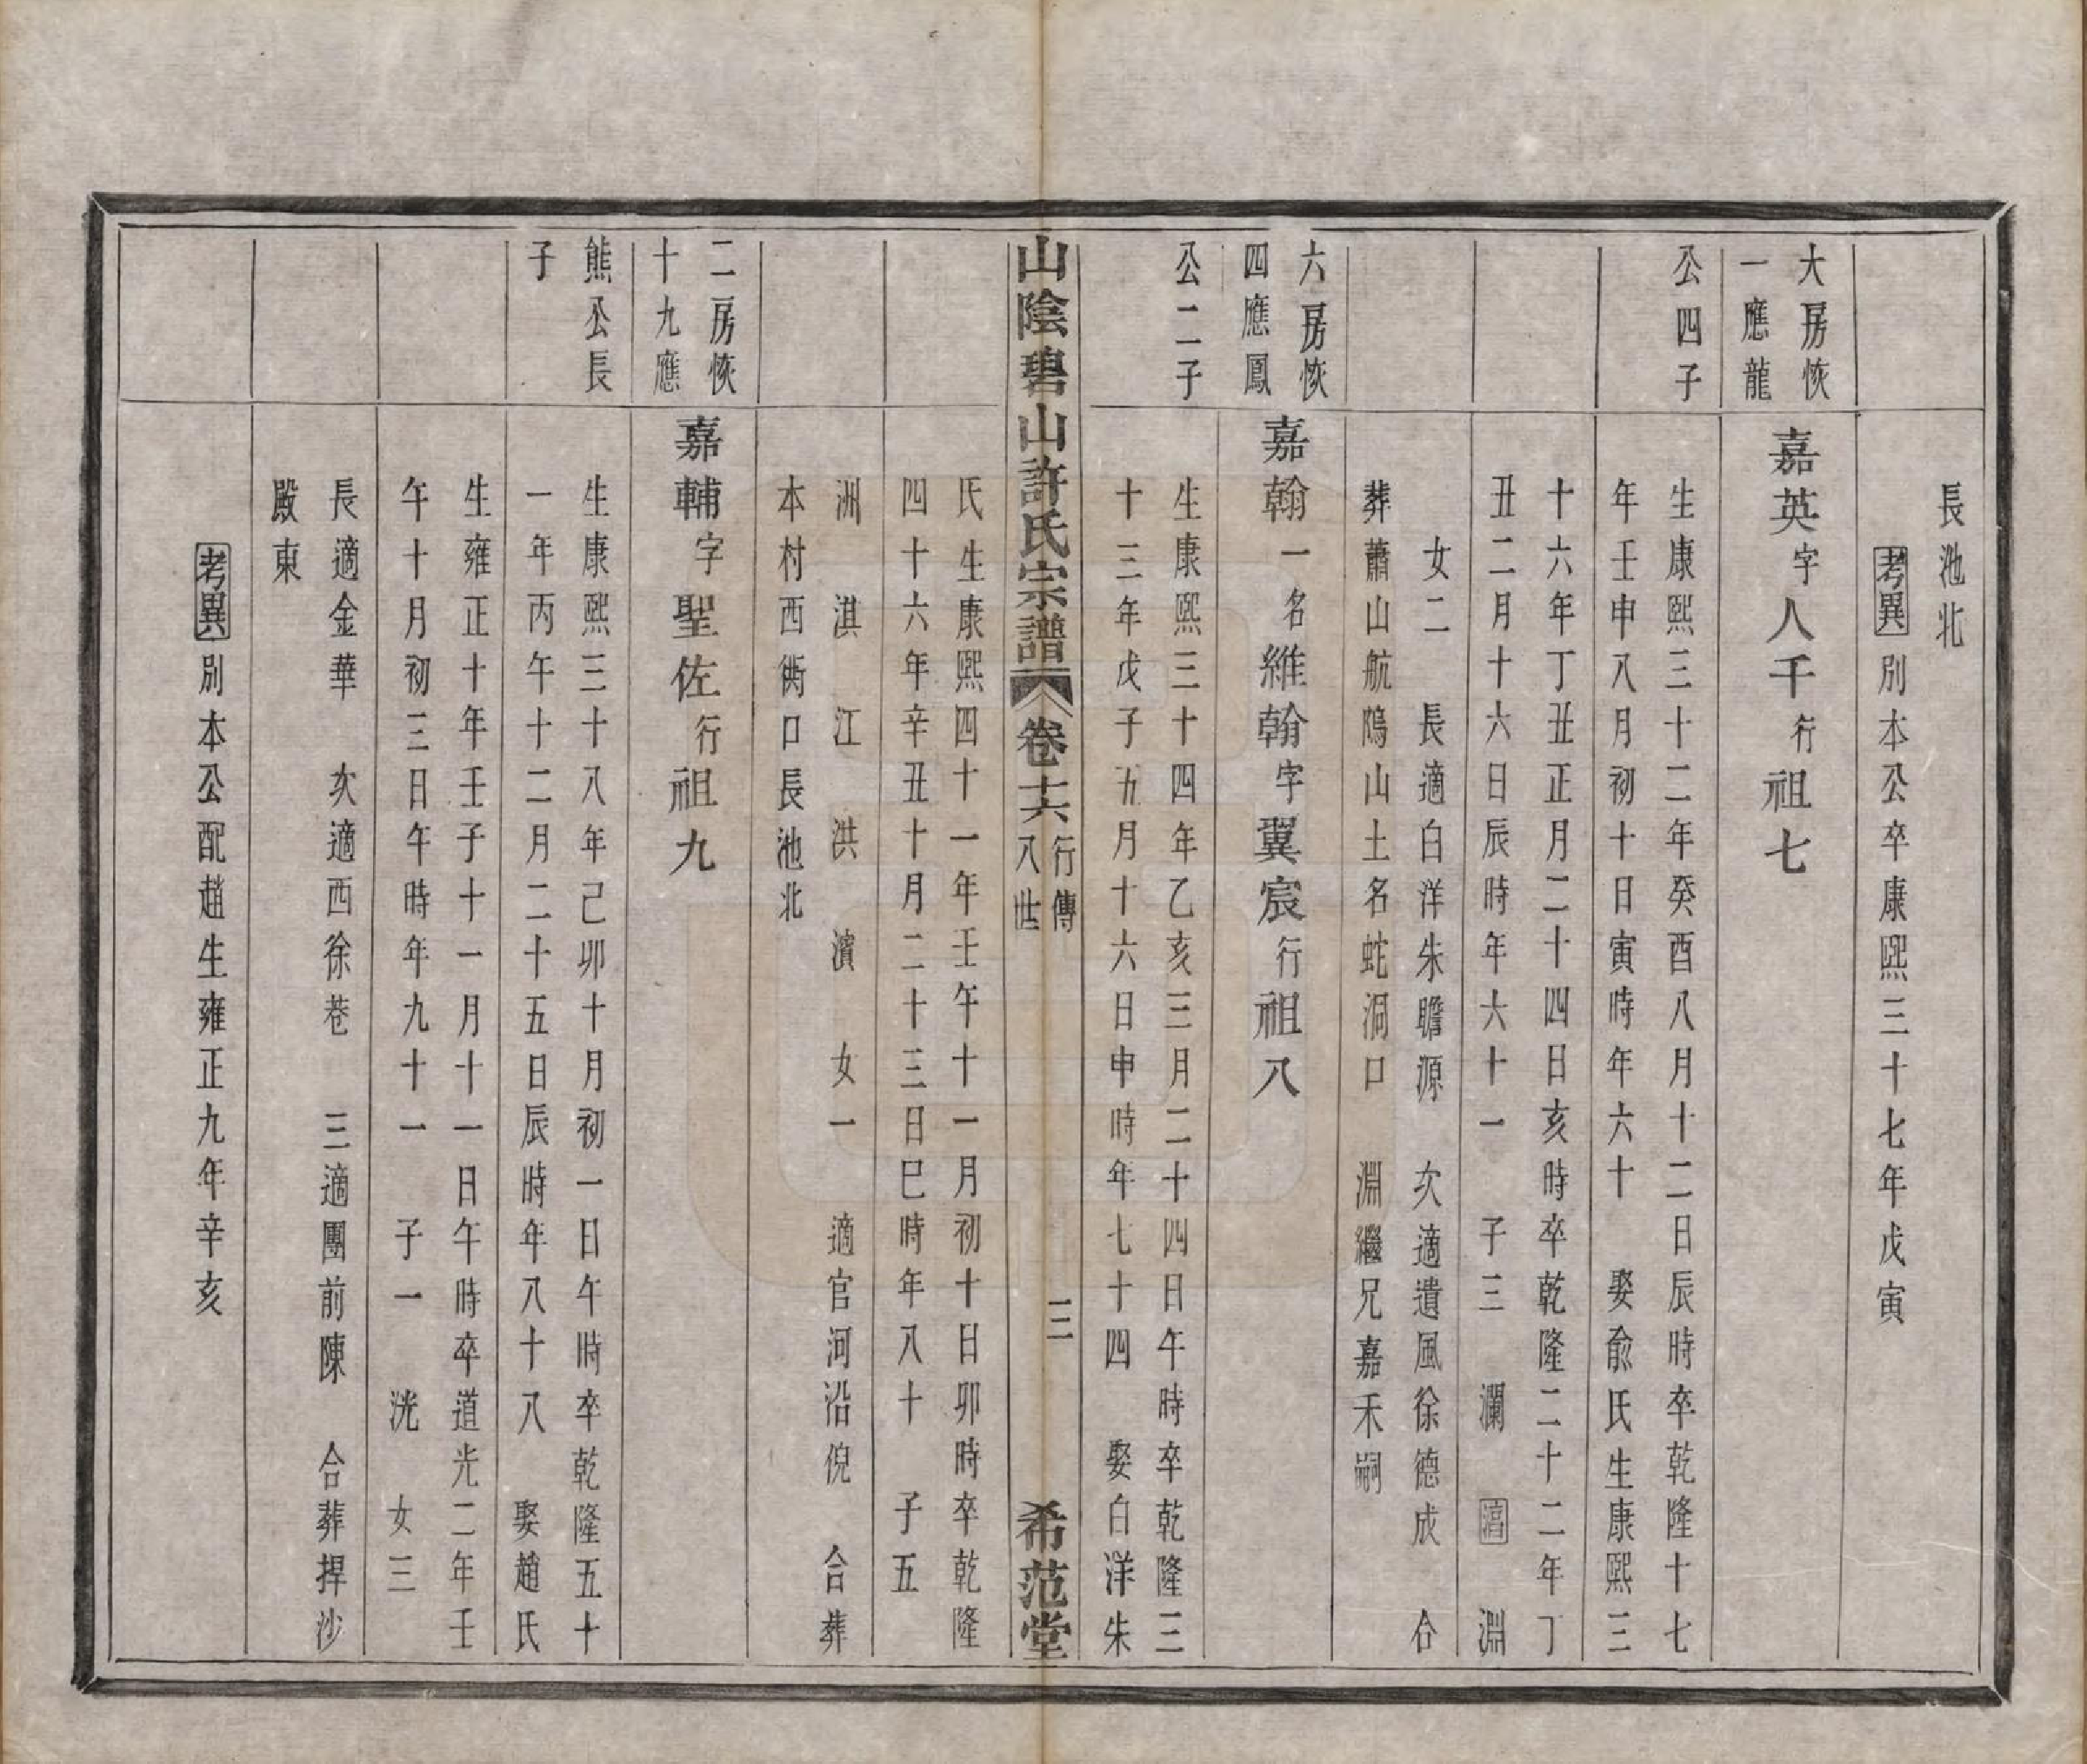 長池北
考異別本公卒康熙三十七年戊寅
大房恢
一應龍
公四子
嘉英字人千行祖七
生康熙三十二年癸酉八月十二日辰時卒乾隆十七
年壬申八月初十日寅時年六十 娶俞氏生康熙三
十六年丁丑正月二十四日亥時卒乾隆二十二年丁
丑二月十六日辰時年六十一 子三 瀾 淵
女二 長適白洋朱瞻源 次適遺風徐德成 合
葬蕭山航塢山土名蛇洞口 淵繼兄嘉禾嗣
六房恢
四應鳳
公二子
嘉翰一名維翰字翼宸行祖八
生康熙三十四年乙亥三月二十四日午時卒乾隆三
十三年戊子五月十六日申時年七十四 娶白洋朱
山陰碧山許氏宗譜 卷十六 行傳 八世 三 希范堂
氏生康熙四十一年壬午十一月初十日卯時卒乾隆
四十六年辛丑十月二十三日巳時年八十 子五
洲 淇 江 洪 濱 女一 適官河沿倪 合葬
本村西衖口長池北
二房恢
十九應
熊公長
子
嘉輔字聖佐行祖九
生康熙三十八年己卯十月初一日午時卒乾隆五十
一年丙午十二月二十五日辰時年八十八 娶趙氏
生雍正十年壬子十一月十一日午時卒道光二年壬
午十月初三日午時年九十一 子一 洸 女三
長適金華 次適西徐巷 三適團前陳 合葬捍沙
殿東
考異別本公配趙生雍正九年辛亥